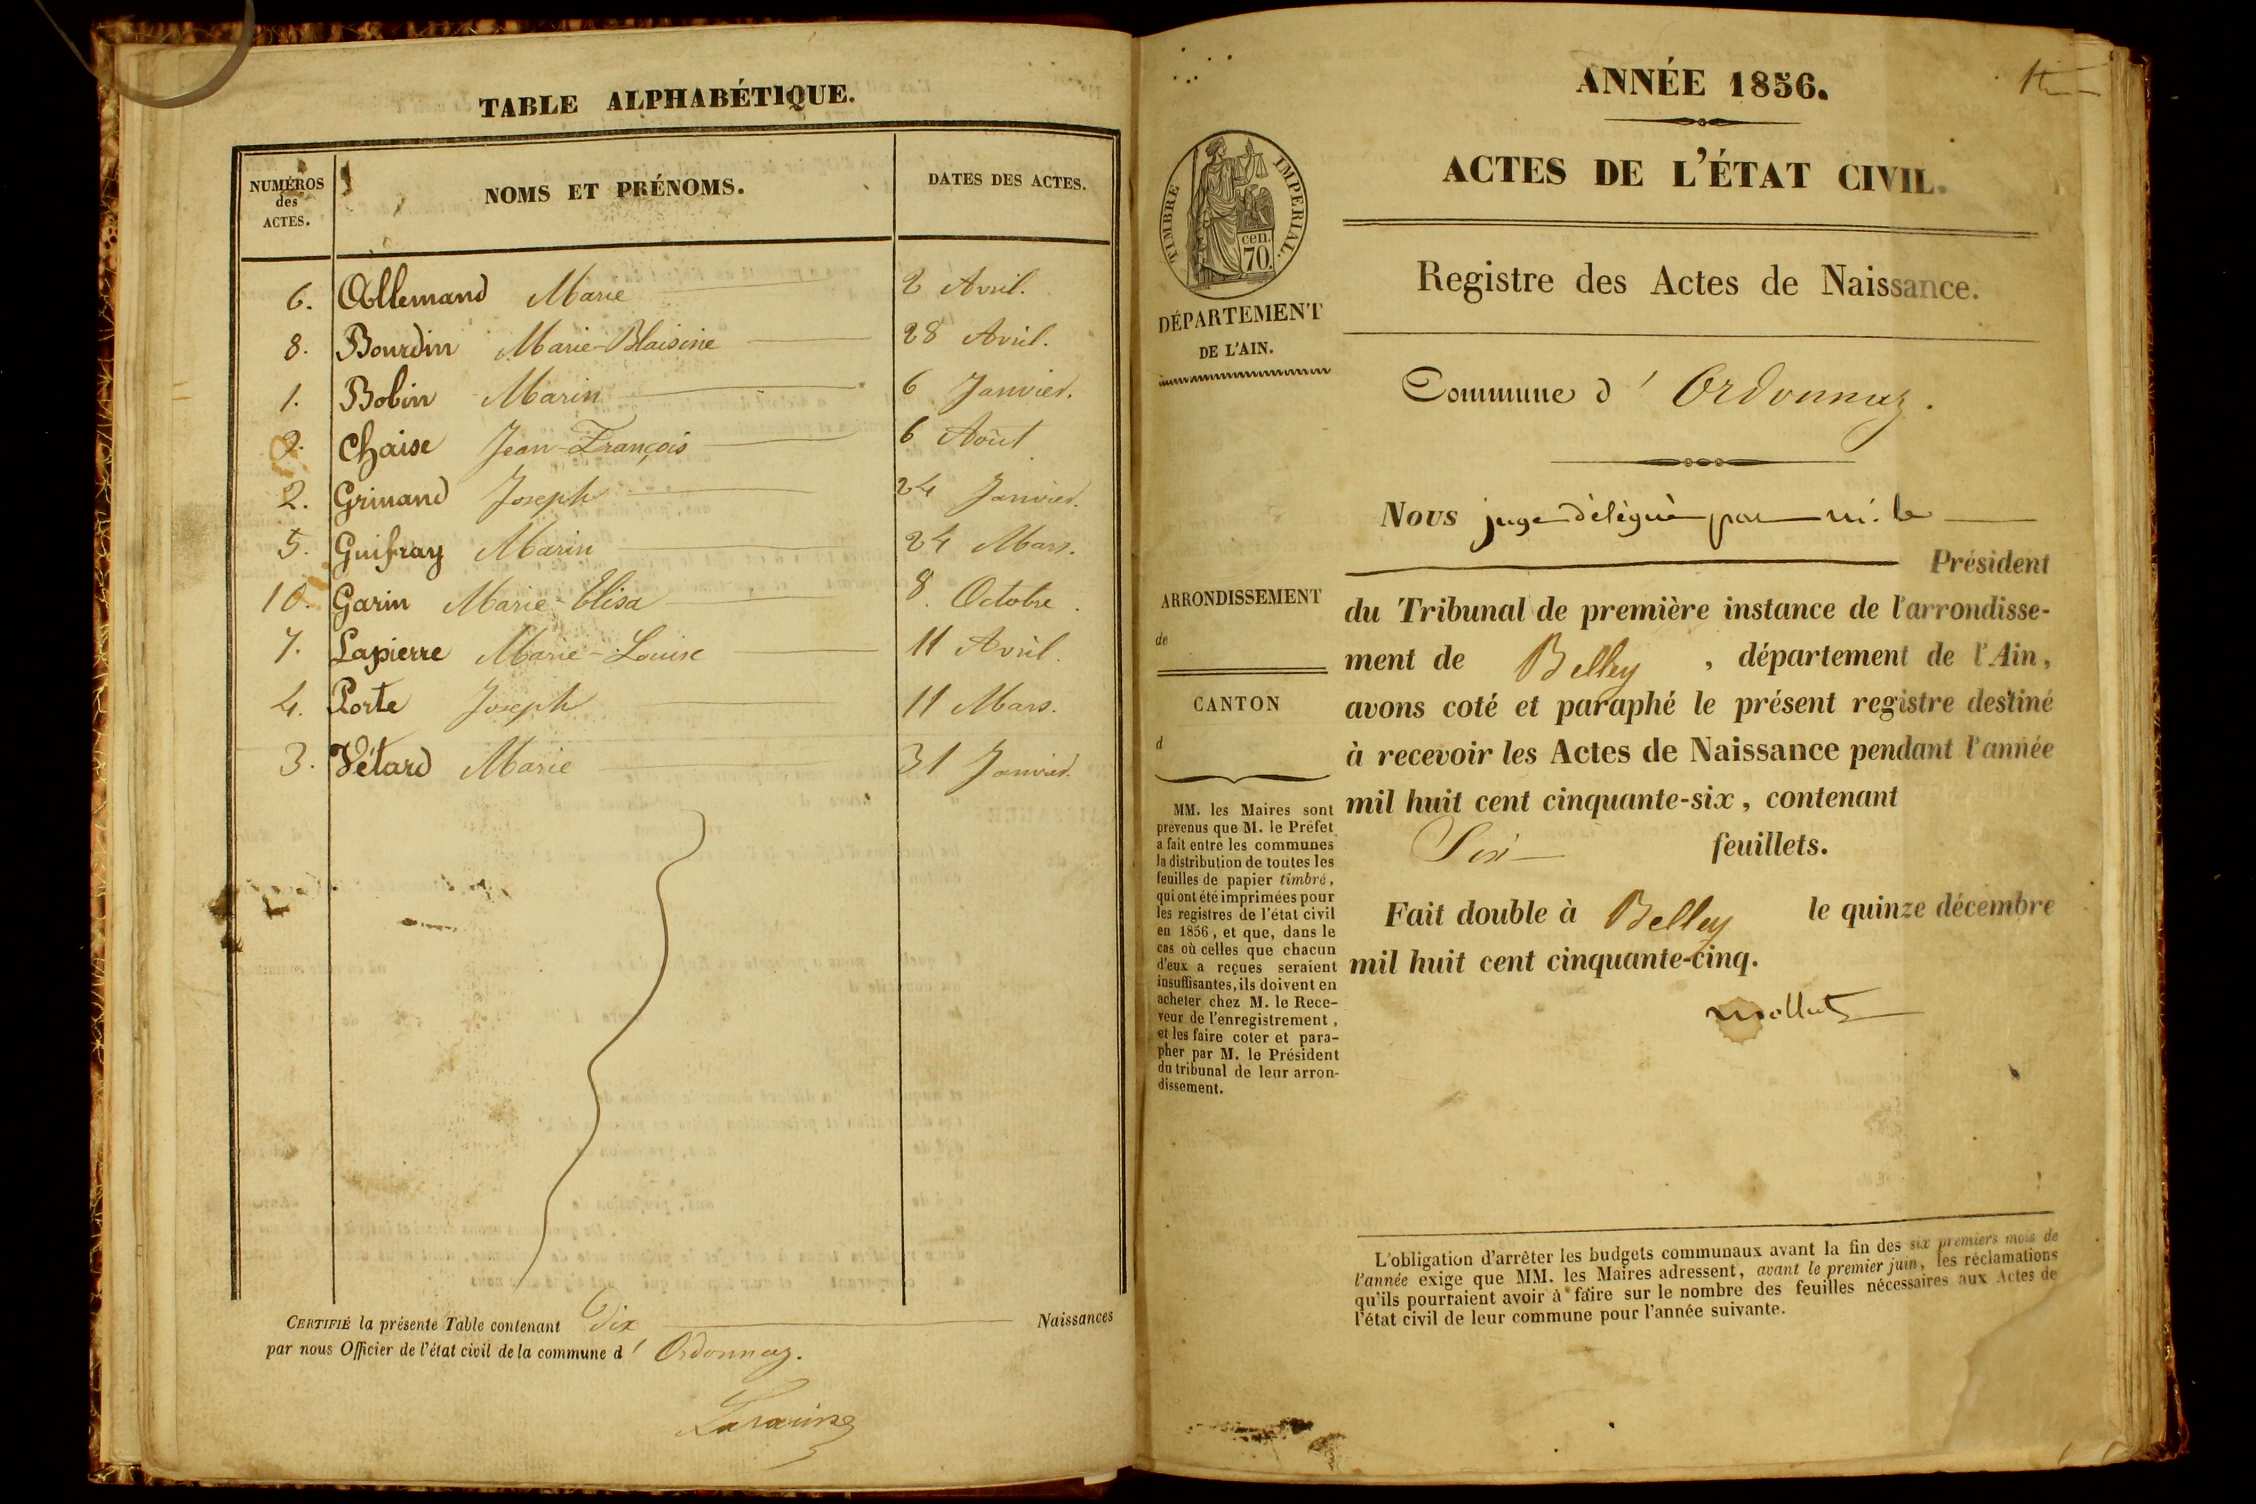 TABLE ALPHABÉTIQUE.
NUMÉROS des ACTES.
NOMS ET PRÉNOMS.
DATES DES ACTES.
6. Allemand Marie 2 Avril.
8. Bourdin Marie-Blaisine 28 Avril.
1. Bobin Marin 6 Janvier.
9. Chaise Jean-François 6 Août
2. Grinand Joseph 24 Janvier.
5. Guifray Marin 24 Mars.
10. Garin Marie-Elisa 8. Octobre.
7. Lapierre Marie-Louise 11 Avril.
4. Porte Joseph 11 Mars.
3. Vétard Marie 31 Janvier.
CERTIFIÉ la présente Table contenant Dix Naissances
par nous Officier de l'état civil de la commune d' Ordonnaz.
ANNÉE 1856.
ACTES DE L'ÉTAT CIVIL.
TIMBRE IMPERIAL.
cen.
70.
DÉPARTEMENT
DE L'AIN.
Registre des Actes de Naissance.
Commune d' Ordonnaz.
Nous juge délégué par m. le
Président
du Tribunal de première instance de l'arrondisse-
ment de Belley , département de l'Ain,
avons coté et paraphé le présent registre destiné
à recevoir les Actes de Naissance pendant l'année
mil huit cent cinquante-six, contenant
Six feuillets.
Fait double à Belley le quinze décembre
mil huit cent cinquante-cinq.
ARRONDISSEMENT
de
CANTON
d
MM. les Maires sont
prévenus que M. le Préfet
a fait entre les communes
la distribution de toutes les
feuilles de papier timbré,
qui ont été imprimées pour
les registres de l'état civil
en 1856, et que, dans le
cas où celles que chacun
d'eux a reçues seraient
insuffisantes, ils doivent en
acheter chez M. le Rece-
veur de l'enregistrement,
et les faire coter et para-
pher par M. le Président
du tribunal de leur arron-
dissement.
L'obligation d'arrêter les budgets communaux avant la fin des six premiers mois de
l'année exige que MM. les Maires adressent, avant le premier juin, les réclamations
qu'ils pourraient avoir à faire sur le nombre des feuilles nécessaires aux Actes de
l'état civil de leur commune pour l'année suivante.